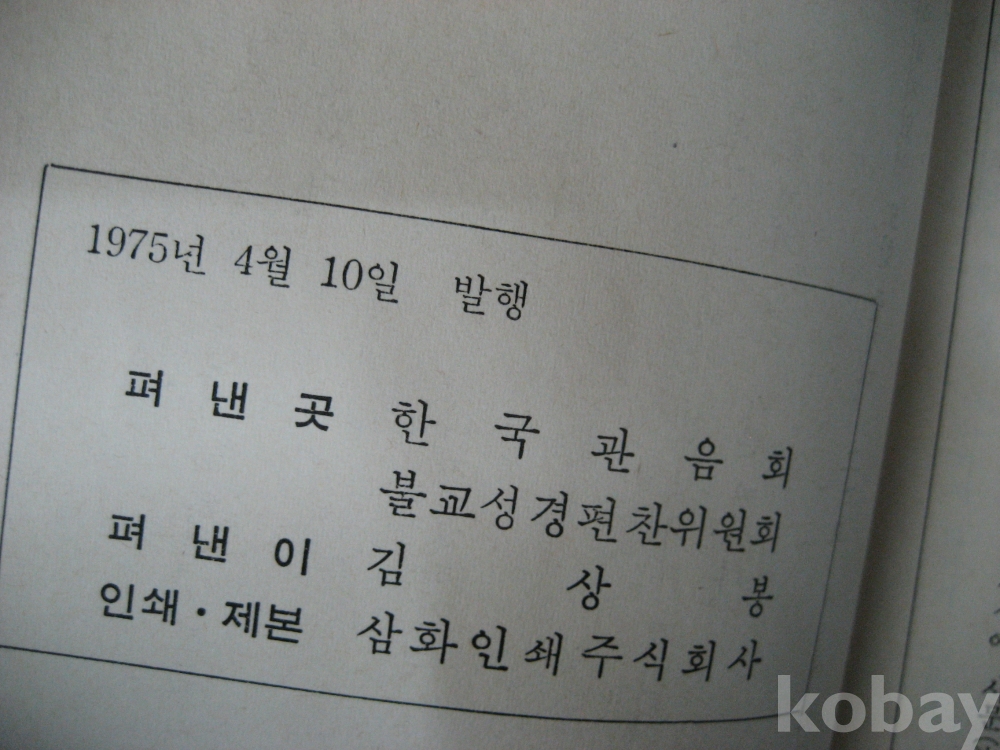 1975년 4월 10일 발행
펴 낸 곳 한 국 관 음 회
불교성경편찬위원회
펴 낸 이 김 상 봉
인쇄·제본 삼화인쇄주식회사
kobay